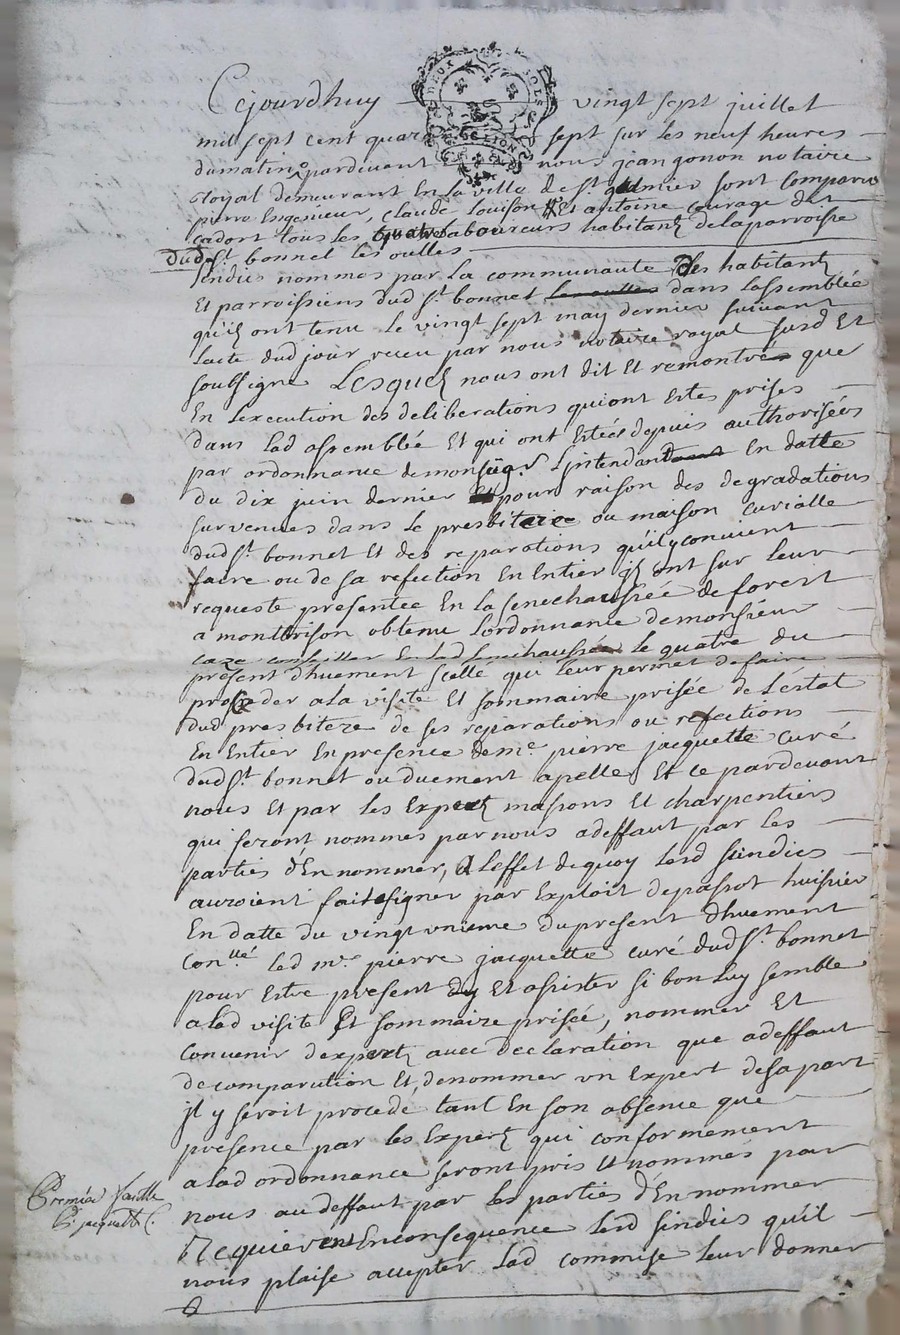 Cejourdhuy vingt sept juillet
DEUX SOLS
G DE LION
mil sept cent quar sept sur les neuf heures
dumatin pardevant nous jean gonon notaire
royal demeurant En la ville de St galmier sont comparu
pierre claude louison Et antoine courage dit
cadort tous les laboureurs habitant delaparroisse
dudst bonnet les oulles
sindics nommes par la communaute Des habitants
Et parroissiens dud st bonnet dans lassemblée
quils ont tenu le vingt sept may dernier suivant
lacte dud jour receu par nous notaire royal susd Et
soubsigne Lesquels nous ont dit Et remontré que
En lexecution des deliberations qui ont Estes prises
dans lad assemblée Et qui ont Estées depuis authorisées
par ordonnance demonseigr Lintendant En datte
du dix juin dernier pour raison des degradations
survenues dans le presbitaire ou maison curialle
dud st bonnet Et des reparations quilyconvient
faire ou de sa refection En Entier ils ont sur leur
requeste presentée En lasenechaussée deforest
a montbrison obtenu Lordonnance demonsieur
caze conseiller En lad senechaussée le quatre du
present dhuement scellé qui leur permet defaire
proceder ala visite Et sommaire prisée de Lestat
dud presbitere de ses reparations ou refections
En Entier En presence deme pierre jacquette curé
dudst bonnet ou duement apellé Et ce pardevant
nous Et par les Experts masons Et charpentiers
qui seront nommes par nous adeffaut par les
parties dEn nommer, a Leffet dequoy lesd sindics
auroient fait asigner par Exploit depassot huissier
En datte du vingt unieme dupresent dhuement
conllé led me pierre jacquette curé dud st bonnet
pour Estre present Et assister si bon luy semble
alad visite Et sommaire prisée, nommer Et
convenir dexperts avec declaration que adeffaut
decomparution Et denommer un Expert desapart
jl y seroit procedé tant En son absence que
presence par les Experts qui conformement
alad ordonnance seront pris Et nommés par
nous audeffaut par les parties dEn nommer
Requierent Enconsequence lesd sindics quil
nous plaise accepter lad commise leur donner
Premiere
P. jacquette C.